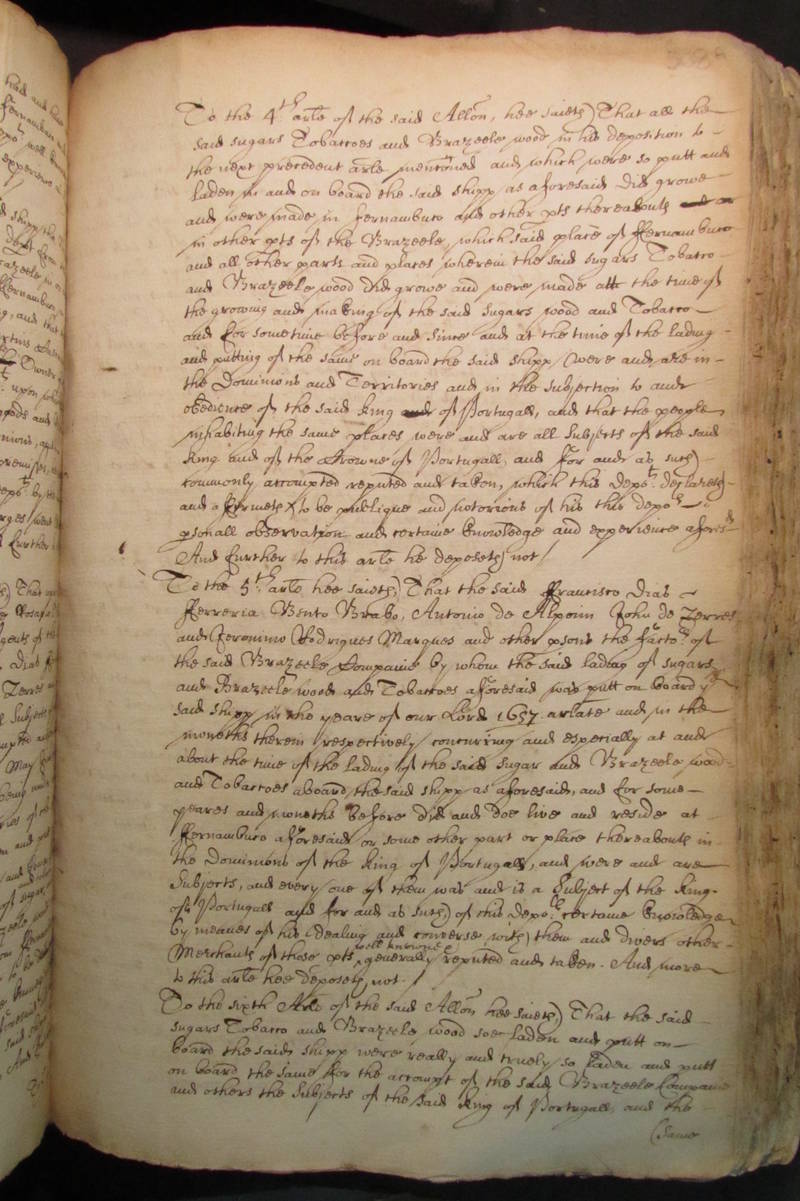 To the 4th arle of the said Allon, hee saieth) That all the
said sugars Tobaccoes and Brazeele wood in his deposition to
the next precedent arle mentioned and which were so putt and
laden in and on board the said shipp as aforesaid did growe
and were made in Fernambuco and other pts thereabouts
in other pts of the Brazeele, which said place of Ffernambuco
and all other parts and places wherein the said sugars Tobacco
and Brazeele wood did growe and were made att the time of
the growing and making of the said sugars wood and Tobacco
and for sometime before and since and at the time of the lading
and putting of the same on board the said shipp were and are in
the Dominions and Territories and in the subjection to and
obedience of the said King and of Portugall, and that the people
inhabiting the same places were and are all Subjects of the said
King and of the Crowne of Portugall, and for and as such)
commonly accompted reputed and taken, which this depot. declareth)
and affirmeth to be publique and notorious of his this depots
psonall observation and certaine knowledge and experience aforesd
And further to this arle he deposeth not /
To the 5th arle hee saieth) That the said Ffrancisco Dias
Fferreria Bento Brabo, Antonio de Alpoim John de Torres
and Jeronimo Rodrigues Marques and other psons the factors of
the said Brazeele Companie by whom the said lading of sugars
and Brazeele wood and Tobaccoes aforesaid was putt on board ye
said shipp in the yeare of our Lord 1657 arlate and in the
moneths therein respectively concurring and especially at and
about the time of the lading of the said sugar and Brazeele wood
and Tobaccoes aboard the said shipp as aforesaid, and for some
yeares and moneths before did and doe live and reside at
Ffernambuco aforesaid or some other part or place thereabouts in
the Dominions of the King of Portugall, and were and are
Subjects, and every one of them was and is a Subject of the King
of Portugall and for and as such) of this depots certaine knowledge
by meanes of his dealing and converse with) them and divers other
Merchants of those pts well knowne generally reputed and taken. And more
to this arle hee deposeth not. /
To the sixth Arle of the said Allon hee saieth) That the said
sugars Tobacco and Brazeele wood soe laden and putt on
board the said shipp were really and truely so laden and putt
on board the same for the accompt of the said Brazeele Companie
and others the Subjects of the said King of Portugall, and the
(same